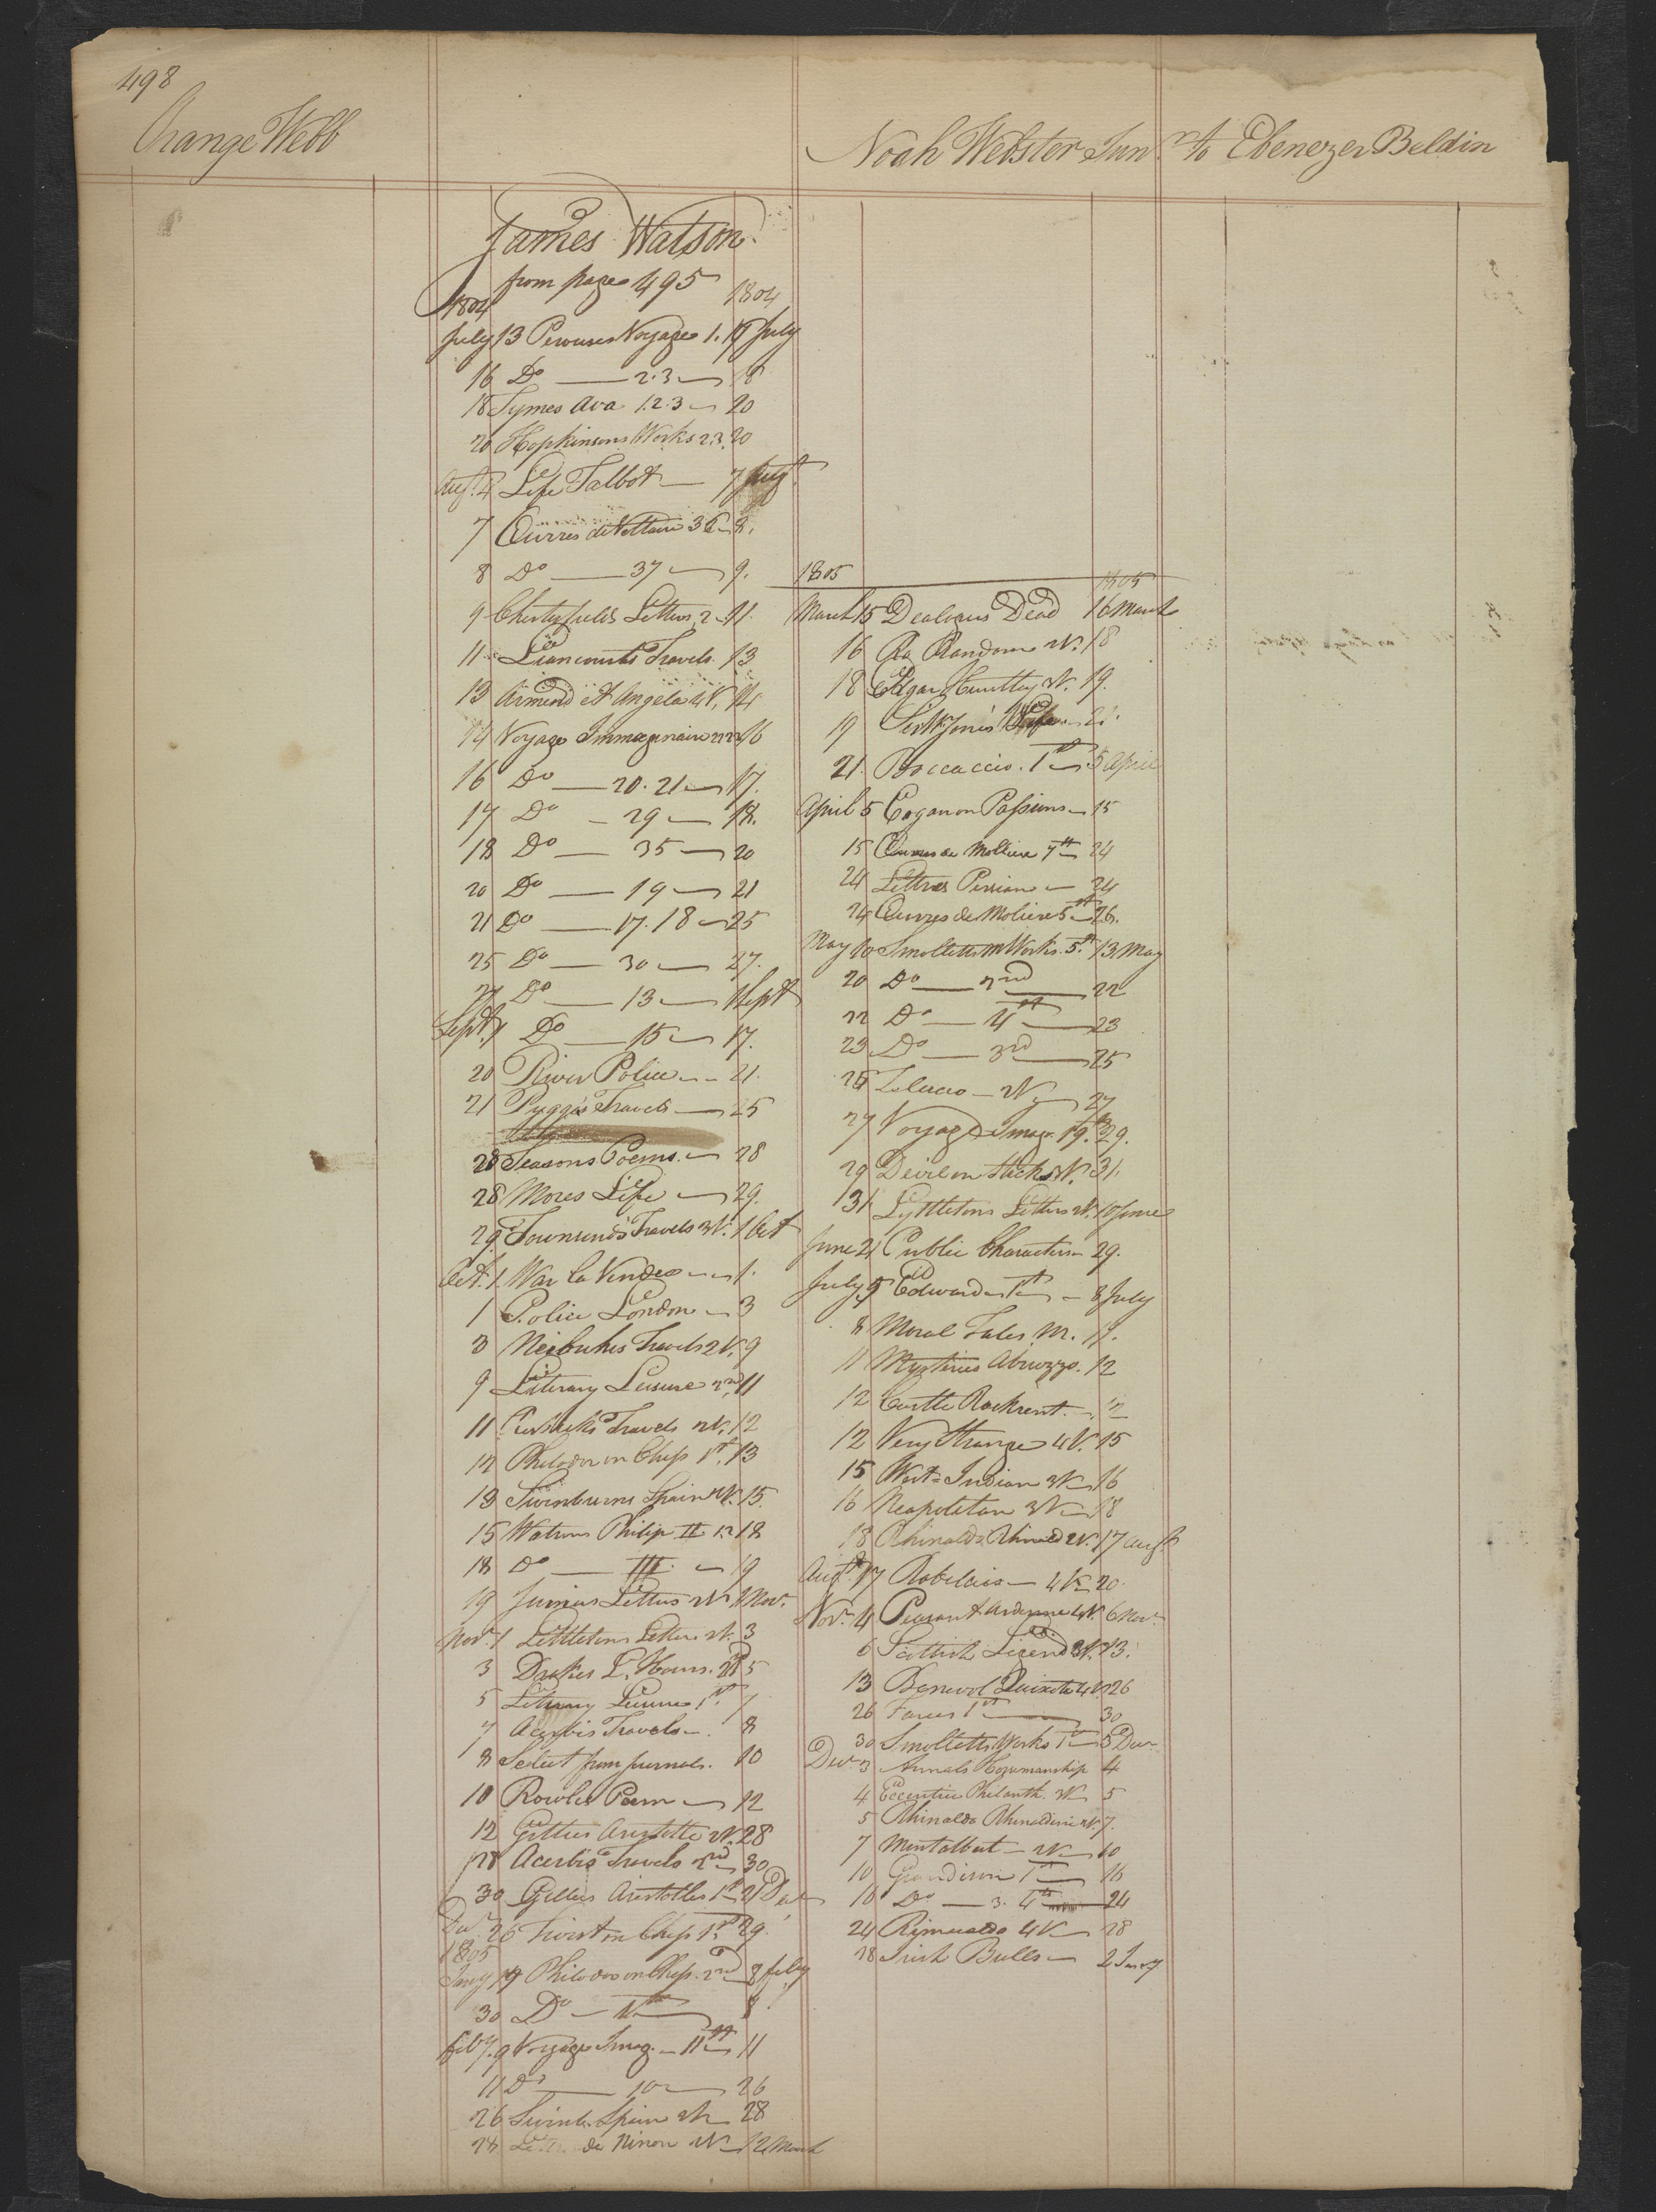 498
Orange Webb
Noah Webster Junr to Ebenezer Beldin
James Watson
from page 495
1804 1804
July 13 Perouses Voyages 1. 17 July
16 Do — 2.3 — 18
18 Symes Ava 1.2.3 — 20
20 Hopkinsons Works 2.3. 20
Augt. 4 Life Talbot — 7 Augt
7 Œuvres de Voltaire 36 — 8.
8 Do — 37 — 9.
9 Chesterfields Letters 2 — 11.
11 Liancourts Travels. 13
13 Armend et Angela 4V. 14
14 Voyage Immagenaire 16
16 Do — 20.21 — 17.
17 Do — 29 — 18.
18 Do — 35 — 20
20 Do — 19 — 21
21 Do — 17.18 — 25
25 Do — 30 — 27.
27 Do — 13 — 1 Sept
Sept. 1 Do — 15 — 17.
20 River Police — 21.
21 Travels — 25
28 Seasons Poems. — 28
28 Mores Life — 29.
29 Townsends Travels 3V. 1 Oct
Oct. 1. War La Vendee — 1.
1 Police London — 3
3 Neibuhrs Travels 2V. 9
9 Literary Leisure 2nd 11
11 Travels 2V. 12
12 Philodor on Chess 1st. 13
13 Swinburns Spain 2V. 15.
15 Watsons Philip II 1.2 18
18 Do — III. — 19
19 Junius Letters 2V 1 Nov.
Novr. 1 Littletons Letters 2V. 3
3 Drakes L. Hours. 2d 5
5 Literary Leisure 1st. 7
7 Acerbis Travels —. 8
8 Select from journals. 10
10 Rowleis Poem — 12
12 Gillies Aristotle 2V. 28
28 Acerbis Travels 2nd — 30
30 Gillies Aristotles 1st 21 Decr
Decr 26 Twist on Chess 1st 29.
1805
Jany 17 Philodor on Chess. 2nd 8 feby
30 Do — 1st — 8
feby. 9 Voyage Imag. — 11th 11
11 Do — 10 — 26
26 Swinb. Spain 2V — 28
28 Letters de Ninon 2V — 12 March
1805 1805
March 15 Dealogues Dead 16 March
16 Ro. Random 2V. 18
18 Edgar Huntley 3V. 19.
19 Sir W Jones Life — 21.
21. Boccaccio. 1st — 5 April
April 5 Cogan on Passions — 15
15 Œuvres de Moliere 7th 24
24 Lettres Persian — 24
24 Œuvres de Moliere 5th — 26.
May 10 Smolletts M Works. 5.th 13 May
20 Do — 2nd — 22
22 Do — 4th — 23
23 Do — 3rd — 25
25 Zeluco — 2V — 27
27 Voyage Imag. 19.th 29.
29 Devil on Sticks 2V. 31.
31. Lyttletons Letters 2V. 10 June
June 21 Public Characters — 29.
July 5 Edward — 1st — 8 July
8 Moral Tales 11.
11 Mysteries Abruzzo. 12
12 Castle Rackrent. — 12
12 Very Strange 4V. 15
15 West-Indian 3V — 16
16 Neapolitan 3V — 18
18 Rhinaldo Rhinald 2V. 17 Augt
Augt. 17 Rabelais — 4V — 20.
Novr. 4 Peasant Ardenne 4V. 6 Novr
6 Scottish Legend 3V. 13.
13 Benevol. Quixote 4V 26
26 Farces 1st — 30
30 Smolletts Works 1st — 3 Decr
Decr. 3 Annals Horsemanship 4
4 Eccentric Philanth. 3V 5
5 Rhinaldo Rhinaldini 2V. 7.
7 Montalbert — 2V — 10
10 Grandison 1st — 16
16 Do — 3. 4th — 24
24 Rimualdo 4V — 28
28 Irish Bulls — 2 Jany